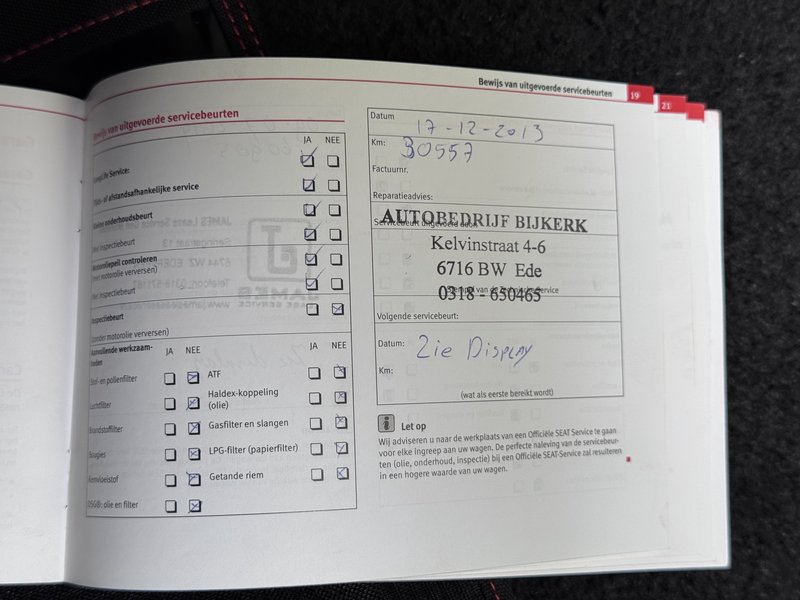 Bewijs van uitgevoerde servicebeurten
19
21
Bewijs van uitgevoerde servicebeurten
JA NEE
LongLife Service:
Tijds- of afstandsafhankelijke service
Kleine onderhoudsbeurt
Met inspectiebeurt
Motoroliepeil controleren
(met motorolie verversen)
Met inspectiebeurt
Inspectiebeurt
(zonder motorolie verversen)
Aanvullende werkzaam-
heden
JA NEE
JA NEE
Stof- en pollenfilter
ATF
Luchtfilter
Haldex-koppeling
(olie)
Brandstoffilter
Gasfilter en slangen
Bougies
LPG-filter (papierfilter)
Remvloeistof
Getande riem
DSG®: olie en filter
Datum
17-12-2013
Km:
30557
Factuurnr.
Reparatieadvies:
Servicebeurt uitgevoerd door:
AUTOBEDRIJF BIJKERK
Kelvinstraat 4-6
6716 BW Ede
Stempel van de Technische Service
0318 - 650465
Volgende servicebeurt:
Datum:
Zie Display
Km:
(wat als eerste bereikt wordt)
i Let op
Wij adviseren u naar de werkplaats van een Officiële SEAT Service te gaan
voor elke ingreep aan uw wagen. De perfecte naleving van de servicebeur-
ten (olie, onderhoud, inspectie) bij een Officiële SEAT-Service zal resulteren
in een hogere waarde van uw wagen.